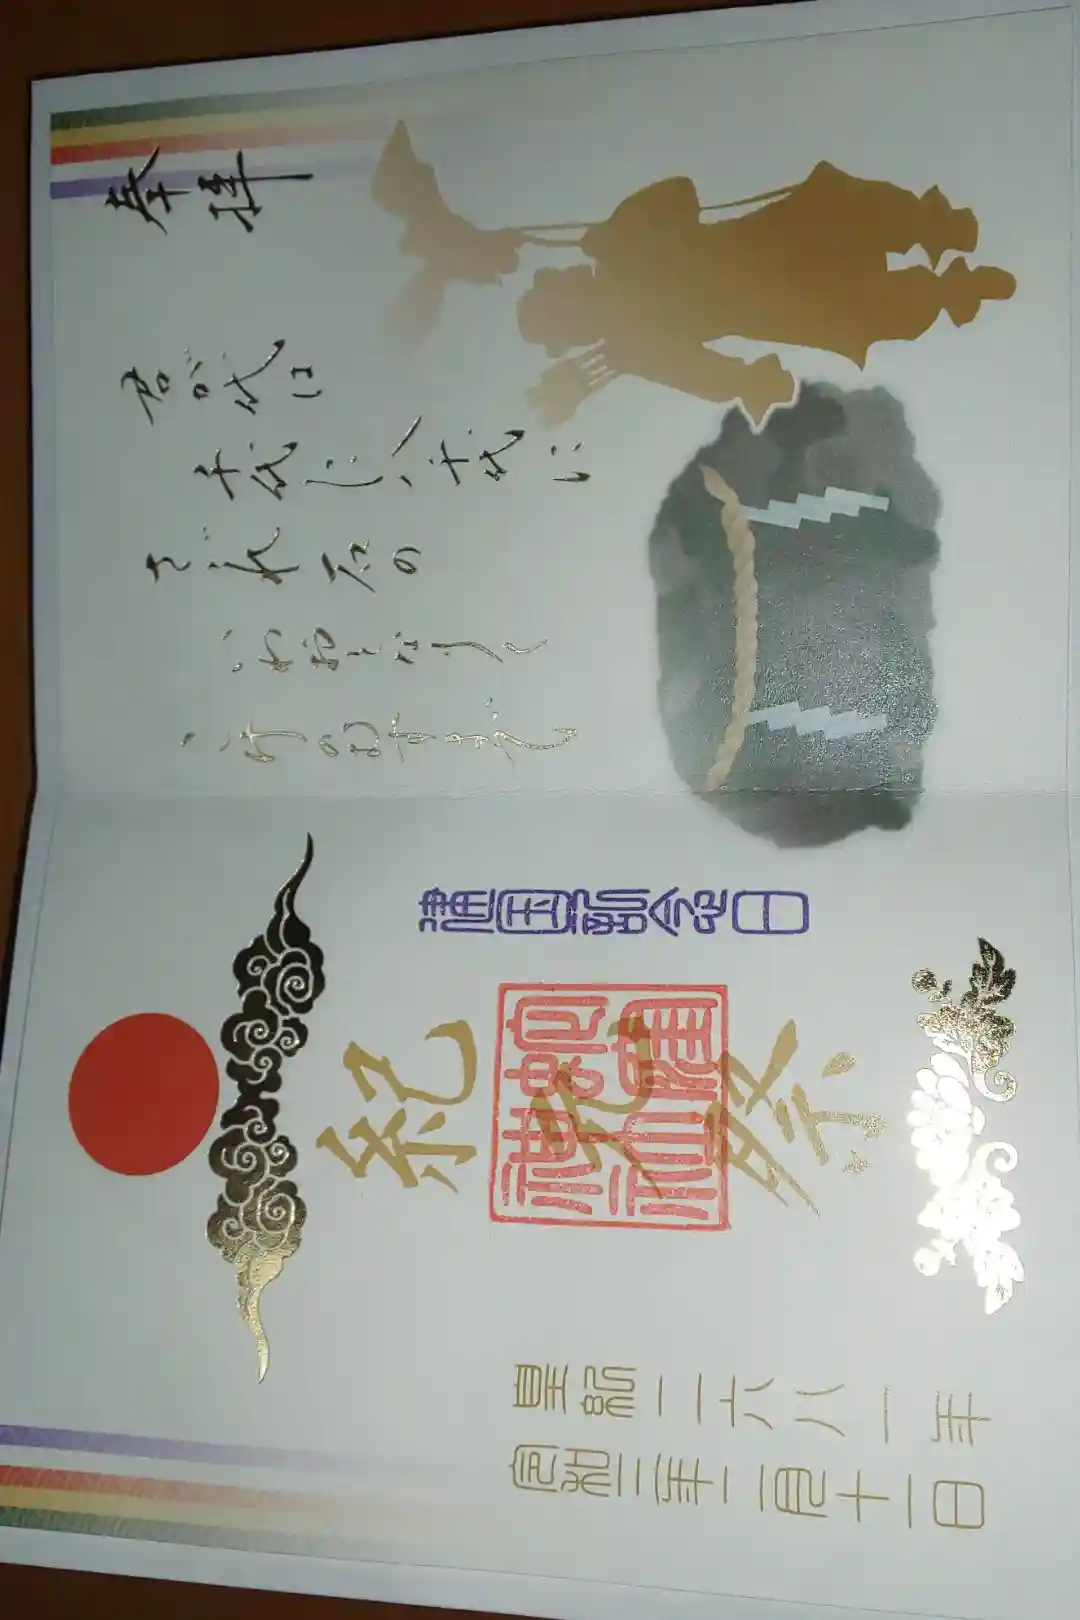 奉拝
君が代は
千代に八千代に
さざれ石の
いわおとなりて
こけのむすまで
建国記念日
紀元祭
皇紀二六八一年
令和三年二月十一日